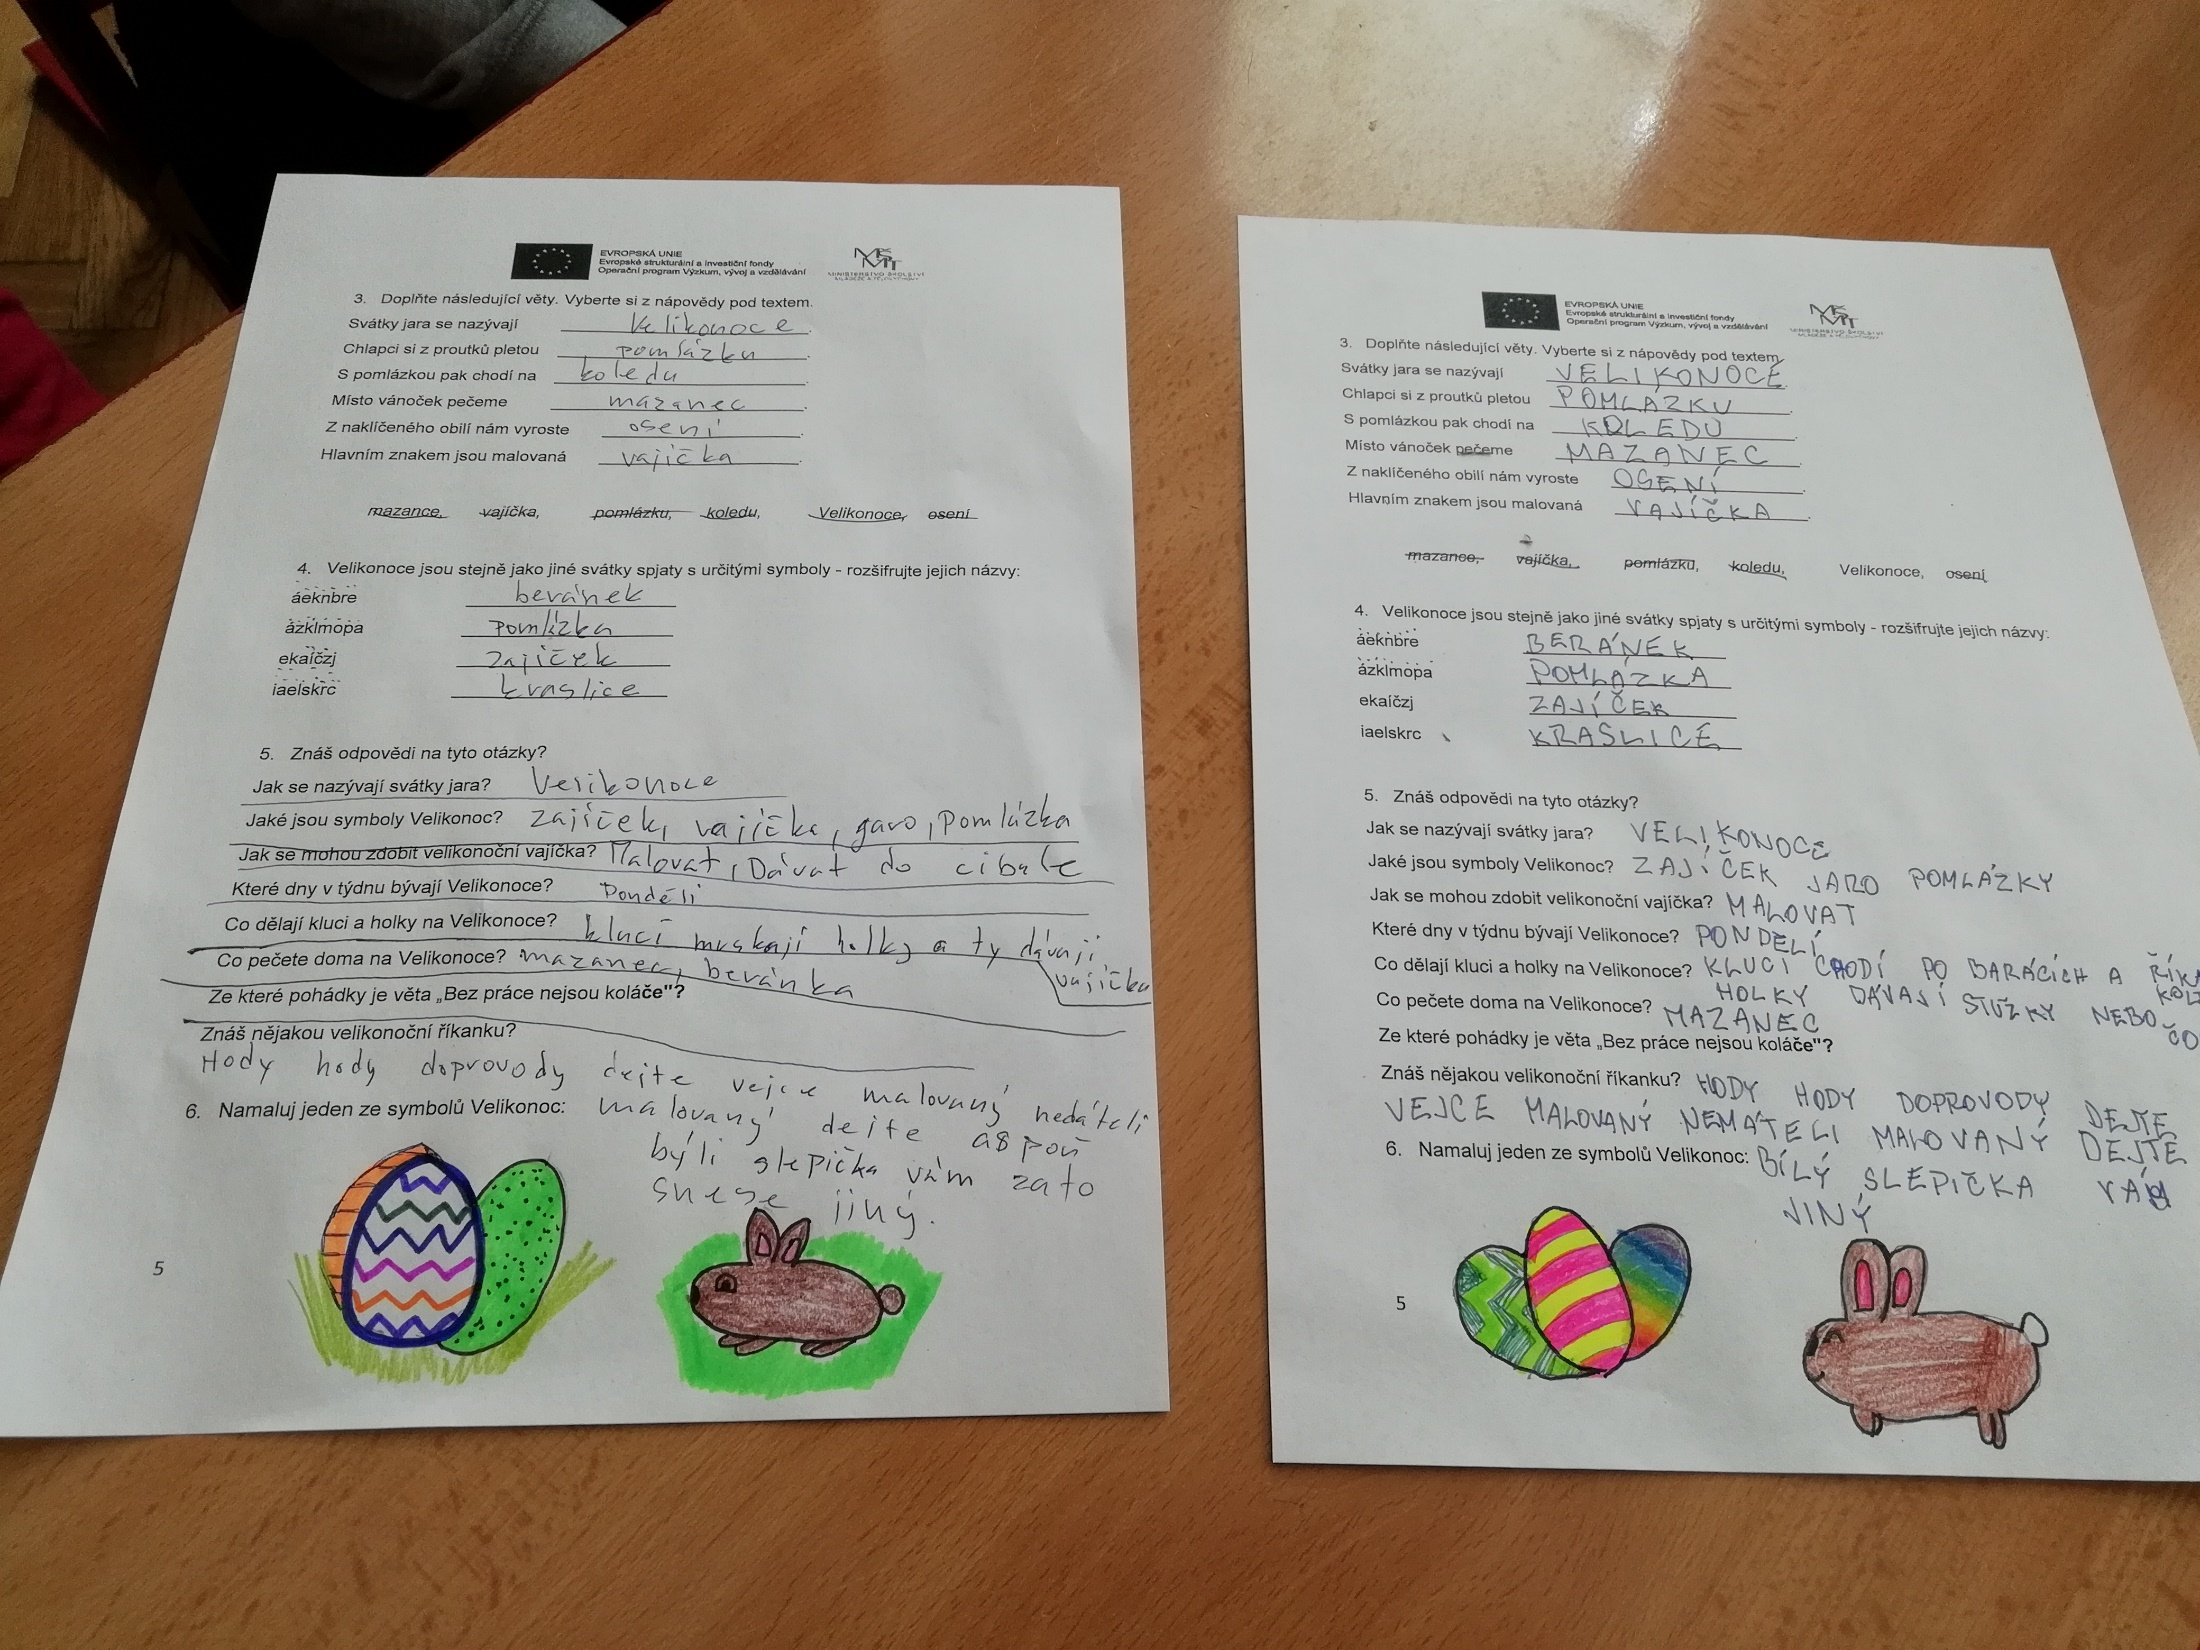 EVROPSKÁ UNIE
Evropské strukturální a investiční fondy
Operační program Výzkum, vývoj a vzdělávání
MŠMT
MINISTERSTVO ŠKOLSTVÍ
MLÁDEŽE A TĚLOVÝCHOVY
3. Doplňte následující věty. Vyberte si z nápovědy pod textem.
Svátky jara se nazývají Velikonoce.
Chlapci si z proutků pletou pomlázku
S pomlázkou pak chodí na koledu
Místo vánoček pečeme mazanec
Z naklíčeného obilí nám vyroste osení
Hlavním znakem jsou malovaná vajíčka
mazance, vajíčka, pomlázku, koledu, Velikonoce, osení
4. Velikonoce jsou stejně jako jiné svátky spjaty s určitými symboly - rozšifrujte jejich názvy:
áeknbre beránek
ázklmopa pomlázka
ekaíčzj zajíček
iaelskrc kraslice
5. Znáš odpovědi na tyto otázky?
Jak se nazývají svátky jara? Velikonoce
Jaké jsou symboly Velikonoc? zajíček, vajíčka, garo, pomlázka
Jak se mohou zdobit velikonoční vajíčka? Malovat, Dávat do cibule
Které dny v týdnu bývají Velikonoce? Pondělí
Co dělají kluci a holky na Velikonoce? kluci mrskají holky a ty dávají
vajíčka
Co pečete doma na Velikonoce? mazanec, beránka
Ze které pohádky je věta „Bez práce nejsou koláče"?
Znáš nějakou velikonoční říkanku?
Hody hody doprovody dejte vejce malovaný nedáteli
6. Namaluj jeden ze symbolů Velikonoc: malovaný dejte aspoň
býli slepička vám zato
snese jiný.
5
EVROPSKÁ UNIE
Evropské strukturální a investiční fondy
Operační program Výzkum, vývoj a vzdělávání
MŠMT
MINISTERSTVO ŠKOLSTVÍ
MLÁDEŽE A TĚLOVÝCHOVY
3. Doplňte následující věty. Vyberte si z nápovědy pod textem.
Svátky jara se nazývají VELIKONOCE
Chlapci si z proutků pletou POMLÁZKU
S pomlázkou pak chodí na KOLEDU
Místo vánoček pečeme MAZANEC
Z naklíčeného obilí nám vyroste OSENÍ
Hlavním znakem jsou malovaná VAJÍČKA
mazance, vajíčka, pomlázku, koledu, Velikonoce, osení
4. Velikonoce jsou stejně jako jiné svátky spjaty s určitými symboly - rozšifrujte jejich názvy:
áeknbre BERÁNEK
ázklmopa POMLÁZKA
ekaíčzj ZAJÍČEK
iaelskrc KRASLICE
5. Znáš odpovědi na tyto otázky?
Jak se nazývají svátky jara? VELIKONOCE
Jaké jsou symboly Velikonoc? ZAJÍČEK JARO POMLÁZKY
Jak se mohou zdobit velikonoční vajíčka? MALOVAT
Které dny v týdnu bývají Velikonoce? PONDĚLÍ
Co dělají kluci a holky na Velikonoce? KLUCI CHODÍ PO BARÁCÍCH A
HOLKY DÁVAJÍ STUŽKY NEBO
Co pečete doma na Velikonoce? MAZANEC
Ze které pohádky je věta „Bez práce nejsou koláče"?
Znáš nějakou velikonoční říkanku? HODY HODY DOPROVODY DEJTE
VEJCE MALOVANÝ NEMÁTELI MALOVANÝ DEJTE
6. Namaluj jeden ze symbolů Velikonoc: BÍLÝ SLEPIČKA
JINÝ
5